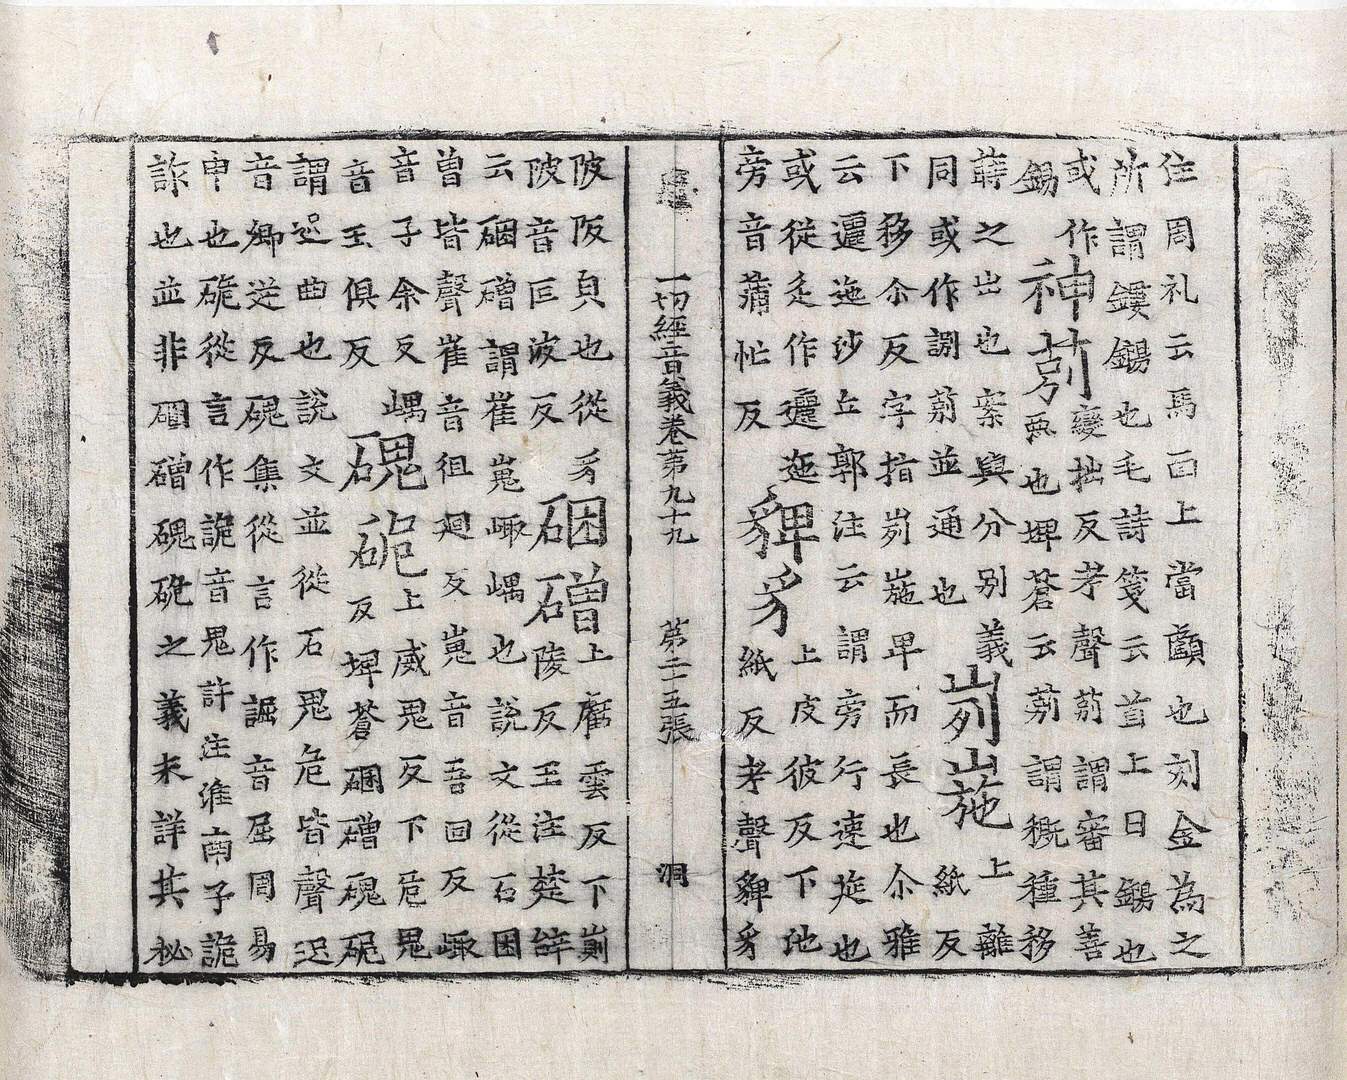 住周礼云馬面上當顱也刻金為之
所謂鏤鍚也毛詩箋云首上曰鍚也
或作
鍚
神莂
變拙反考聲莂謂審其善
惡也埤蒼云莂謂穊種移
蒔之出也案與分别義
同或作謭莂並通也
峛崺
上離
紙反
下移尒反字指峛崺卑而長也尒雅
云邐迤沙丘郭注云謂旁行連莚也
或從辵作邐迤
旁音蒲忙反
貏豸
上皮彼反下池
紙反考聲貏豸
一切經音義卷第九十九 第二十五張 洞
陂阪皃也從豸
陂音叵波反
硱磳
上雲反下崱
陵反王注楚辞
云硱磳謂崔嵬㟬嵎也說文從石困
曾皆聲崔音徂廻反嵬音吾回反㟬
音子余反嵎
音玉俱反
磈硊
上威鬼反下危鬼
反埤蒼硱磳磈硊
謂迟曲也說文並從石鬼危皆聲迟
音卿逆反磈集從言作誳音屈周易
申也硊從言作詭音鬼許注淮南子詭
詐也並非硱磳磈硊之義未詳其秘